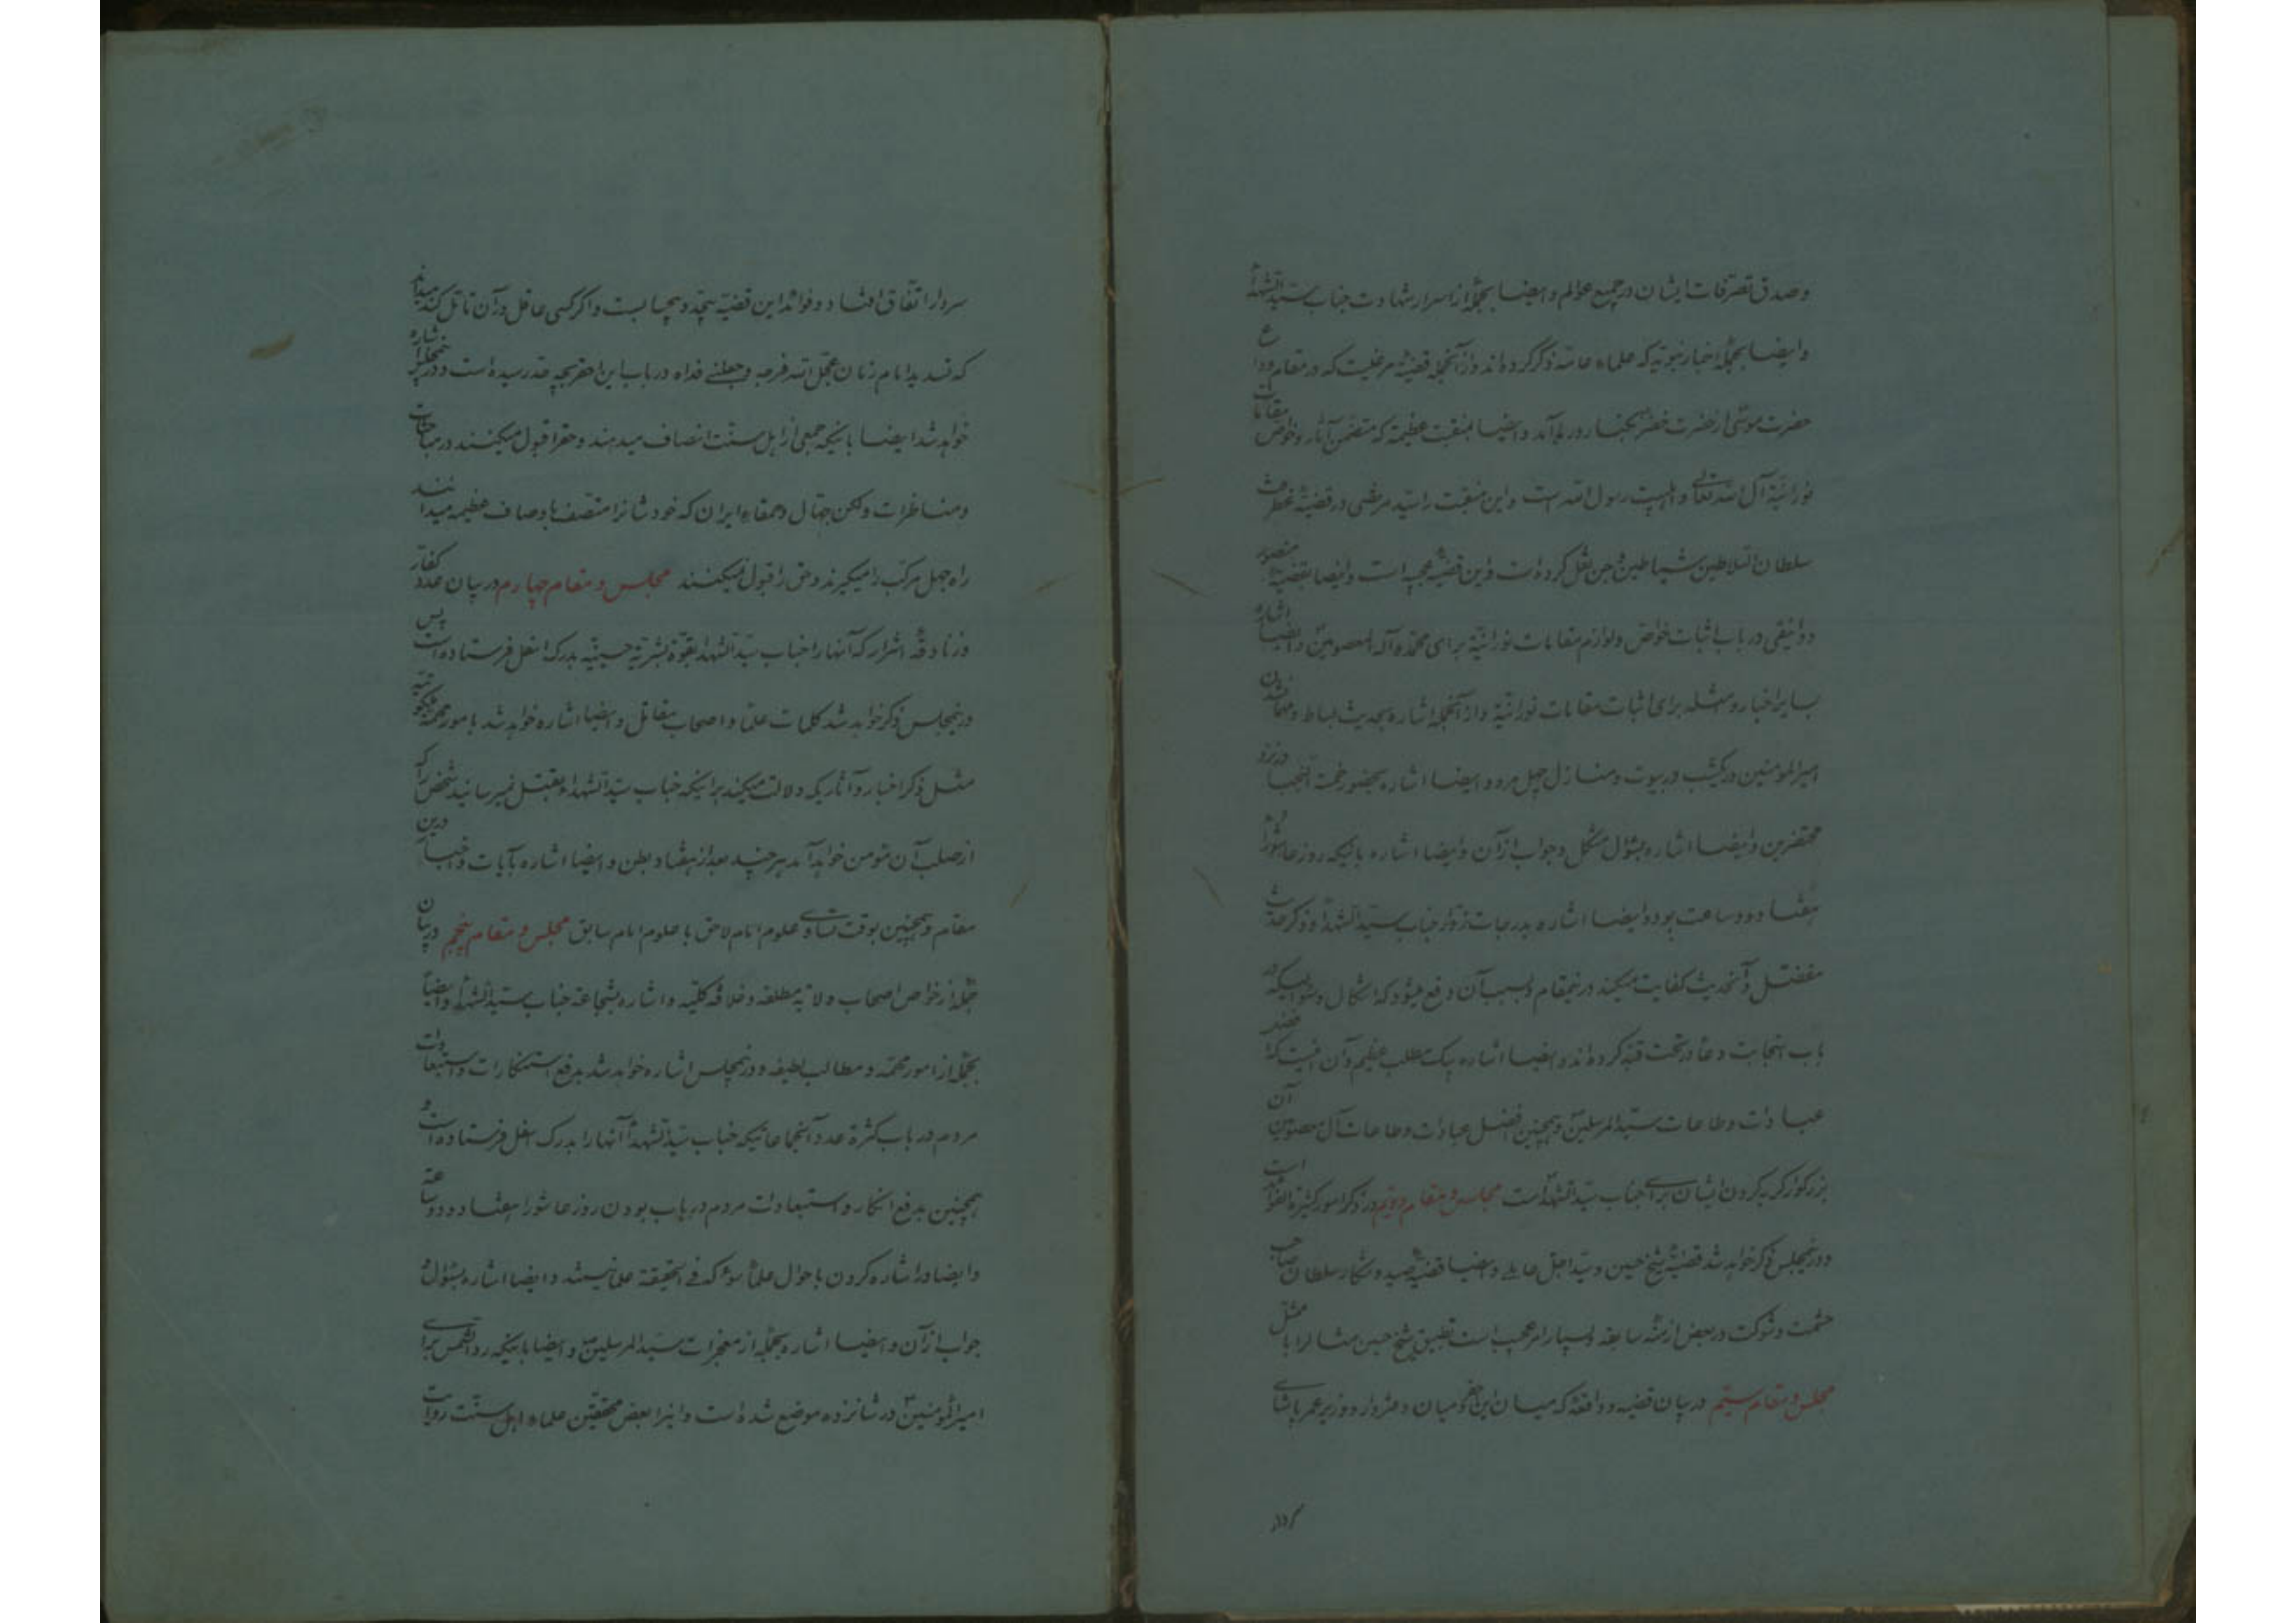 و صدق تصرفات ایشان در جمیع عوالم و ایضا بجملهٔ از اسرار شهادت جناب سید الشهداء
و ایضا بجملهٔ اخبار نبویه که علماء عامه ذکر کرده‌اند و از آنجمله قضیهٔ مرغیست که در مقام وداع
حضرت موسی از حضرت خضر بجنب رود برآمد و ایضا بمنقبت عظیمه که متضمن آثار و خواص مقامات
نورانیة آل الله تعالی و اهلبیت رسول الله است و این منقبت را سید مرتضی در قضیهٔ
سلطان السلاطین شیاطین جن نقل کرده است و این قضیهٔ عجیبه است و ایضا بقضیهٔ منصور
دوانیقی در باب اثبات خواص و لوازم مقامات نورانیة برای محمد و آله المعصومین و ایضا اشاره
بسایر اخبار و امثله برای اثبات مقامات نورانیة و از آنجمله اشاره بحدیث بساط و مهمان شدن
امیر المومنین در یکشب در بیوت و منازل چهل مرد و ایضا اشاره بحضور خمسة النجبا در نزد
محتضرین و ایضا اشاره بسئوال مشکل و جواب از آن و ایضا اشاره باینکه روز عاشورا
هفتاد و دو ساعت بود و ایضا اشاره بدرجات زوار جناب سید الشهداء و ذکر حدیث
مفضل و آنحدیث کفایت میکند در نیمقام و بسبب آن دفع میشود که اشکال و سئوالیکه در
باب استجابت دعا در تحت قبه کرده‌اند و ایضا اشاره بیک مطلب عظیم و آن اینست که افضل
عبادات و طاعات سید المرسلین و همچنین افضل عبادات و طاعات آل معصومین آن
بزرگوار گریه کردن ایشان برای جناب سید الشهداء است مجلس و مقام دویم در ذکر امور کثیرة الفوائد است
و در نیمجلس ذکر خواهد شد قضیهٔ شیخ حسین و سید اجل عابد و ایضا قضیهٔ صید و شکار سلطان صاحب
حشمت و شوکت در بعض ازمنهٔ سابقه و بسیار امر عجیب است تطبیق شیخ حسین مثال را با ممثل
مجلس و مقام سیم در بیان قضیه و واقعهٔ که میان این حقیر و میان دفتردار و وزیر عمر پاشای
سردار
سردار اتفاق افتاد و فوائد این قضیه بیحد و بیحسابست و اگر کسی عاقل در آن تأمل کند میداند
که تسدید امام زمان عجل الله فرجه و جعلنی فداه در باب این احقر بچه قدر رسیده است و در نیمجلس اشاره
خواهد شد ایضا باینکه جمعی از اهل سنت انصاف میدهند و حق را قبول میکنند در مباحثات
و مناظرات و لکن جهال و حمقاء ایران که خودشانرا متصف باوصاف عظیمه میدانند
راه جهل مرکب را میگیرند و حق را قبول نمیکنند مجلس و مقام چهارم در بیان عدد کفار
و زنادقهٔ اشرار که آنها را جناب سید الشهداء بقوة بشریة حسینیه بدرک اسفل فرستاده است پس
در نیمجلس ذکر خواهد شد کلمات علما و اصحاب مقاتل و ایضا اشاره خواهد شد بامور مهمه
مثل ذکر اخبار و آثاریکه دلالت میکند بر اینکه جناب سید الشهداء بقتل نمیرسانید شخصی را که
از صلب آن مومن خواهد آمد هر چند بعد از هفتاد بطن و ایضا اشاره بآیات و اخبار درین
مقام و همچنین بوقت تساوی علوم امام لاحق با علوم امام سابق مجلس و مقام پنجم در بیان
جملهٔ از خواص اصحاب ولایة مطلقه و خلافة کلیه و اشاره بشجاعة جناب سید الشهداء و ایضا
بجملهٔ از امور مهمه و مطالب لطیفه و در نیمجلس اشاره خواهد شد بدفع استنکارات و استبعادات
مردم در باب کثرة عدد آنجماعتیکه جناب سید الشهداء آنها را بدرک اسفل فرستاده است و
همچنین بدفع انکار و استبعادات مردم در باب بودن روز عاشورا هفتاد و دو ساعة
و ایضا در اشاره کردن باحوال علماء سوء که فی الحقیقة علما نیستند و ایضا اشاره بسئوال و
جواب از آن و ایضا اشاره بجملهٔ از معجزات سید المرسلین و ایضا باینکه رد الشمس برای
امیر المومنین در شانزده موضع شده است و اینرا بعض محققین علماء اهل سنت روایت